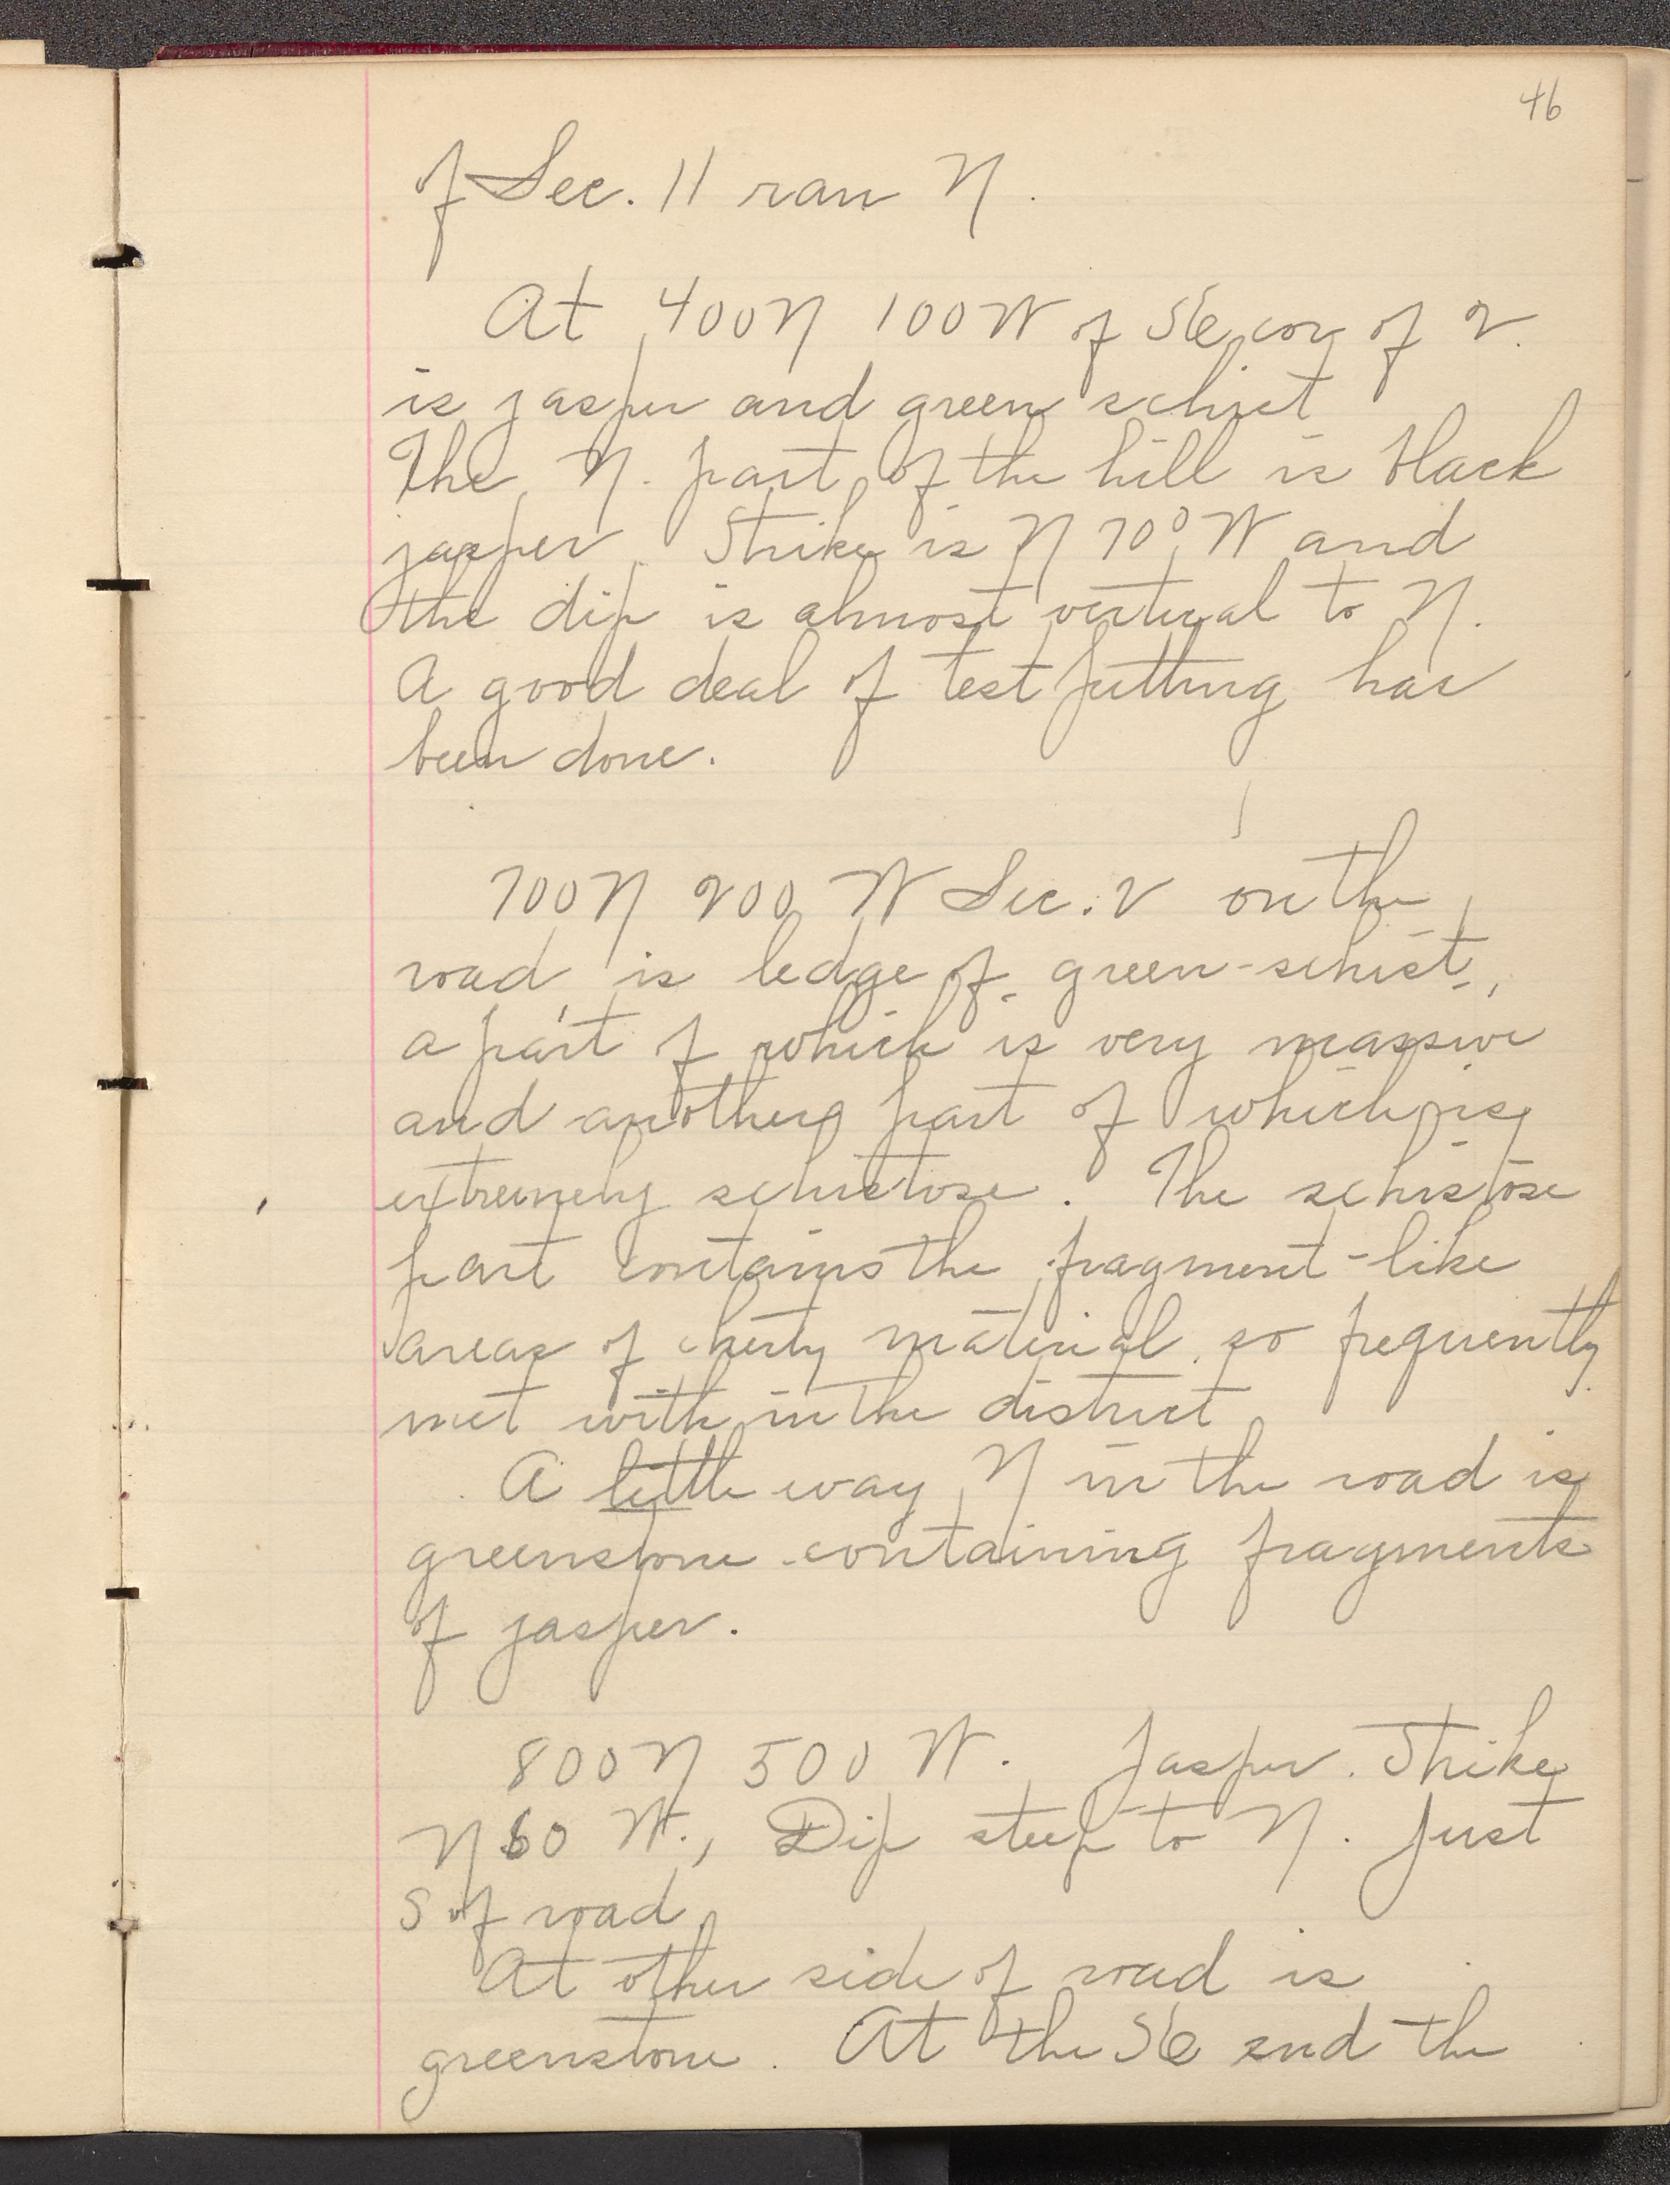 46
of Sec. 11 ran N.
At 400N 100W of SE cor of 2.
is jasper and green schist
The N. part of the hill is black
jasper. Strike is N 70° W and
the dip is almost vertical to N.
A good deal of test pitting has
been done.
700N 200 W Sec. 2 on the
road is ledge of green-schist,
a part of which is very massive
and another part of which is
extremely schistose. The schistose
part contains the fragment-like
areas of cherty material so frequently
met with in the district
A little way N in the road is
greenstone containing fragments
of jasper.
800N 500 W. Jasper. Strike
N 60 W., Dip steep to N. Just
S of road
At other side of road is
greenstone. At the SE end the